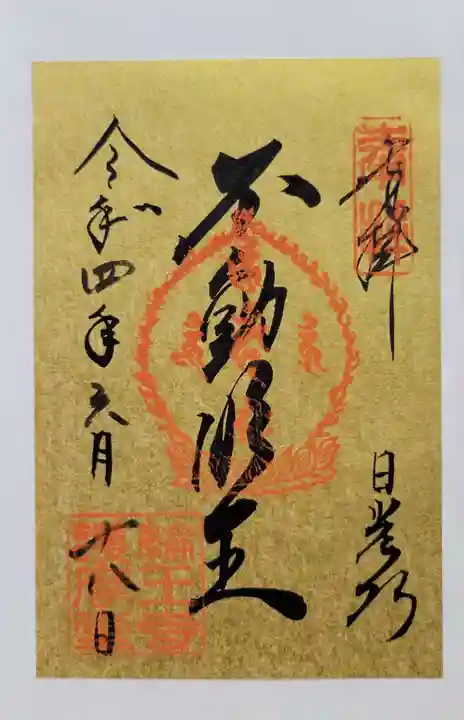 奉拝
日光山
不動明王
令和四年六月
十八日
輪王寺
護摩堂